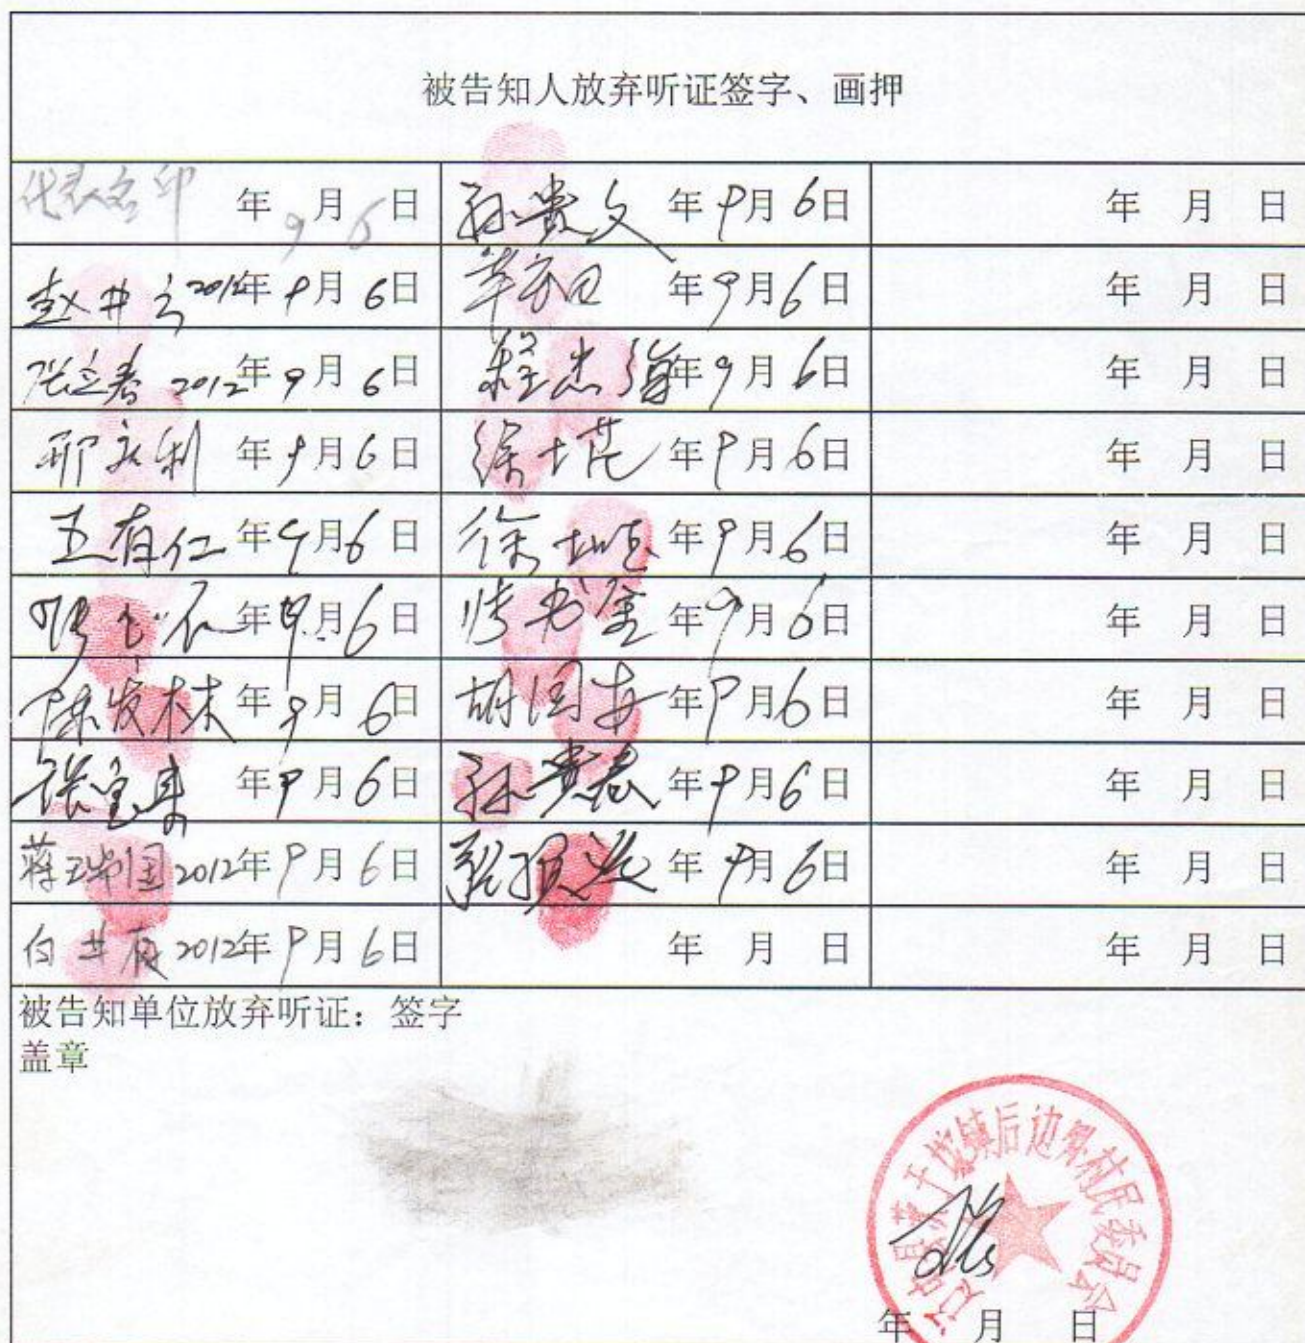 被告知人放弃听证签字、画押
代表名印 年9月6日 孙贵文 年9月6日 年 月 日
赵井云 2012年9月6日 年9月6日 年 月 日
张立春 2012年9月6日 程忠海 年9月6日 年 月 日
邢永利 年9月6日 徐士范 年9月6日 年 月 日
王有仁 年9月6日 徐 年9月6日 年 月 日
年9月6日 张书金 年9月6日 年 月 日
陈发林 年9月6日 胡国安 年9月6日 年 月 日
张宝 年9月6日 孙贵春 年9月6日 年 月 日
蒋瑞国 2012年9月6日 年9月6日 年 月 日
白井 2012年9月6日 年 月 日 年 月 日
被告知单位放弃听证：签字
盖章
辽中县茨于坨镇后边外村民委员会
年 月 日